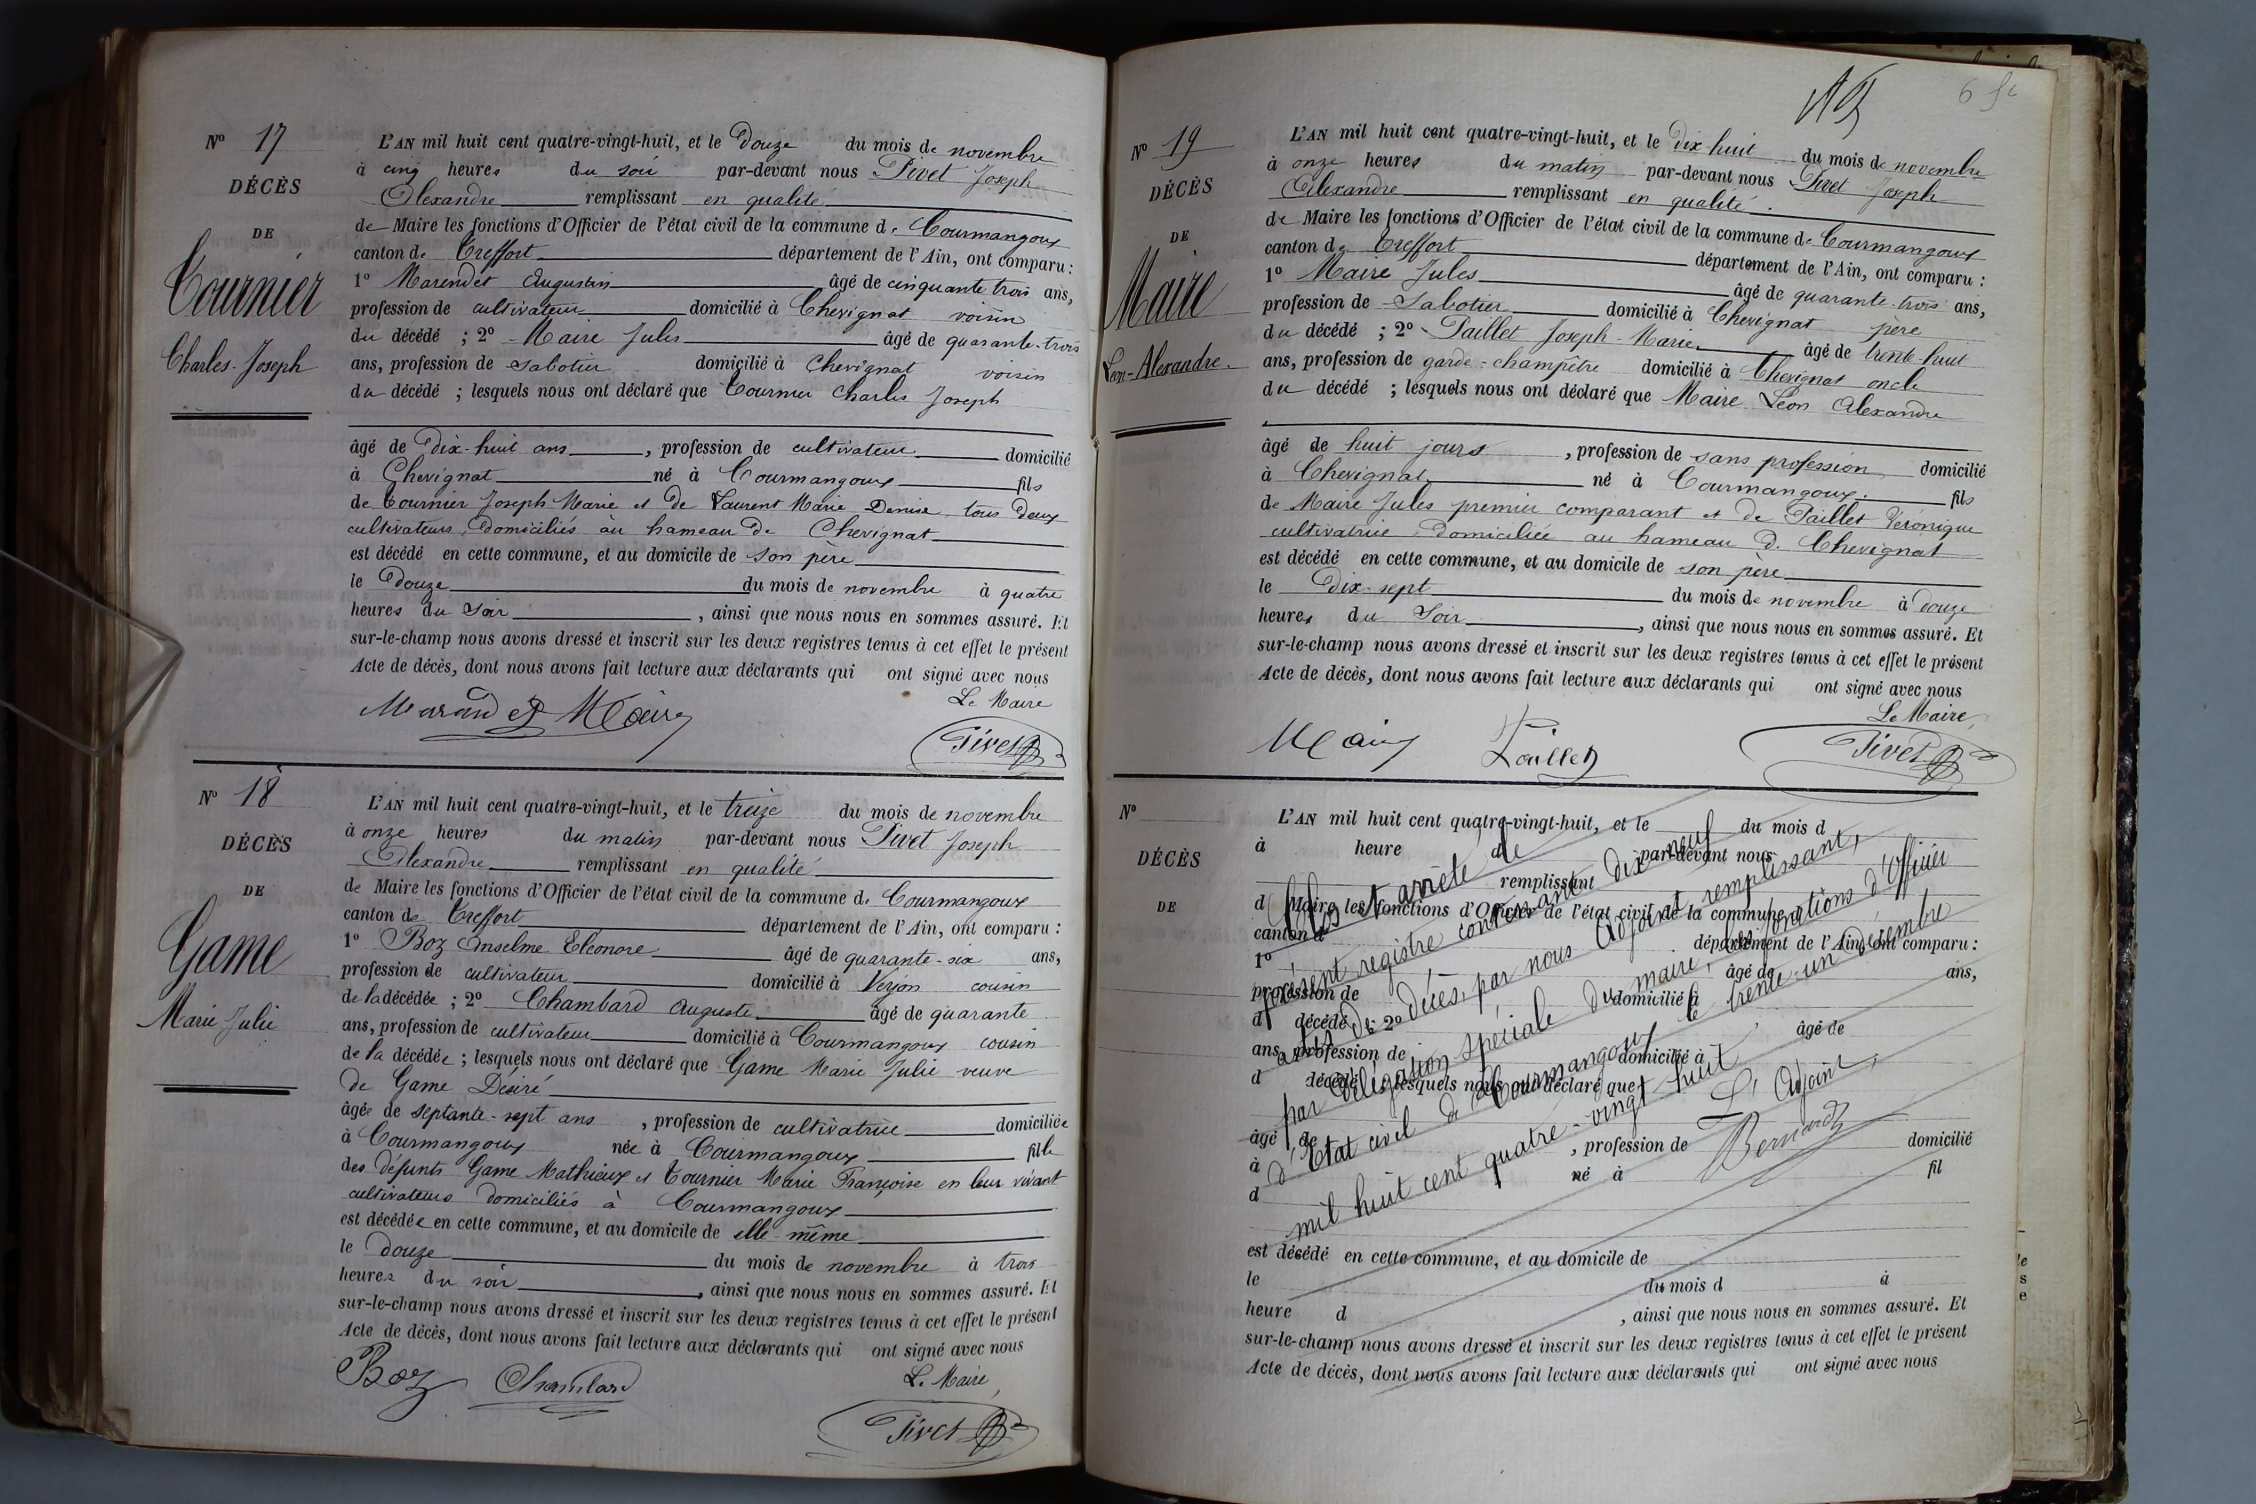 N° 17
DÉCÈS
DE
Tournier
Charles-Joseph
L'AN mil huit cent quatre-vingt-huit, et le Douze du mois de novembre
à cinq heures du soir par-devant nous Pivet Joseph
Alexandre remplissant en qualité
de Maire les fonctions d'Officier de l'état civil de la commune de Courmangoux
canton de Treffort département de l'Ain, ont comparu :
1° Marendet Augustin âgé de cinquante trois ans,
profession de cultivateur domicilié à Chevignat voisin
du décédé ; 2° Maire Jules âgé de quarante-trois
ans, profession de sabotier domicilié à Chevignat voisin
du décédé ; lesquels nous ont déclaré que Tournier Charles Joseph
âgé de Dix-huit ans, profession de cultivateur domicilié
à Chevignat né à Courmangoux fils
de Tournier Joseph Marie et de Laurent Marie Denise tous deux
cultivateurs, domiciliés au hameau de Chevignat
est décédé en cette commune, et au domicile de son père
le Douze du mois de novembre à quatre
heures du soir, ainsi que nous nous en sommes assuré. Et
sur-le-champ nous avons dressé et inscrit sur les deux registres tenus à cet effet le présent
Acte de décès, dont nous avons fait lecture aux déclarants qui ont signé avec nous
Le Maire
Marendet Maire
Pivet
N° 18
DÉCÈS
DE
Game
Marie Julie
L'AN mil huit cent quatre-vingt-huit, et le treize du mois de novembre
à onze heures du matin par-devant nous Pivet Joseph
Alexandre remplissant en qualité
de Maire les fonctions d'Officier de l'état civil de la commune de Courmangoux
canton de Treffort département de l'Ain, ont comparu :
1° Boz Anselme Eléonore âgé de quarante-six ans,
profession de cultivateur domicilié à Verjon cousin
de la décédée ; 2° Chambard Auguste âgé de quarante
ans, profession de cultivateur domicilié à Courmangoux cousin
de la décédée ; lesquels nous ont déclaré que Game Marie Julie veuve
de Game Désiré
âgée de septante-sept ans, profession de cultivatrice domiciliée
à Courmangoux née à Courmangoux fille
des défunts Game Mathieux et Tournier Marie Françoise en leur vivant
cultivateurs domiciliés à Courmangoux
est décédée en cette commune, et au domicile de elle-même
le Douze du mois de novembre à trois
heures du soir, ainsi que nous nous en sommes assuré. Et
sur-le-champ nous avons dressé et inscrit sur les deux registres tenus à cet effet le présent
Acte de décès, dont nous avons fait lecture aux déclarants qui ont signé avec nous
Le Maire,
Boz Chambard
Pivet
N° 19
DÉCÈS
DE
Maire
Léon-Alexandre
L'AN mil huit cent quatre-vingt-huit, et le Dix-huit du mois de novembre
à onze heures du matin par-devant nous Pivet Joseph
Alexandre remplissant en qualité
de Maire les fonctions d'Officier de l'état civil de la commune de Courmangoux
canton de Treffort département de l'Ain, ont comparu :
1° Maire Jules âgé de quarante-trois ans,
profession de Sabotier domicilié à Chevignat père
du décédé ; 2° Paillet Joseph-Marie âgé de trente-huit
ans, profession de garde-champêtre domicilié à Chevignat oncle
du décédé ; lesquels nous ont déclaré que Maire Léon Alexandre
âgé de huit jours, profession de sans profession domicilié
à Chevignat né à Courmangoux fils
de Maire Jules premier comparant et de Paillet Véronique
cultivatrice domiciliée au hameau de Chevignat
est décédé en cette commune, et au domicile de son père
le Dix-sept du mois de novembre à douze
heures du Soir, ainsi que nous nous en sommes assuré. Et
sur-le-champ nous avons dressé et inscrit sur les deux registres tenus à cet effet le présent
Acte de décès, dont nous avons fait lecture aux déclarants qui ont signé avec nous
Le Maire,
Maire Paillet
Pivet
N°
DÉCÈS
DE
L'AN mil huit cent quatre-vingt-huit, et le du mois d
à heure d par-devant nous
remplissant
d Maire les fonctions d'Officier de l'état civil de la commune d
canton d département de l'Ain, ont comparu :
1° âgé de ans,
profession de domicilié à
d décédé ; 2° âgé de
ans, profession de domicilié à
d décédé ; lesquels nous ont déclaré que
âgé de , profession de domicilié
à né à fil
d
est décédé en cette commune, et au domicile de
le du mois d à
heure d , ainsi que nous nous en sommes assuré. Et
sur-le-champ nous avons dressé et inscrit sur les deux registres tenus à cet effet le présent
Acte de décès, dont nous avons fait lecture aux déclarants qui ont signé avec nous
Clos et arrêté le
présent registre contenant dix-neuf
actes de décès, par nous Adjoint remplissant,
par délégation spéciale du maire, les fonctions d'Officier
d'Etat civil de Courmangoux le trente-un décembre
mil huit cent quatre-vingt-huit
L'Adjoint,